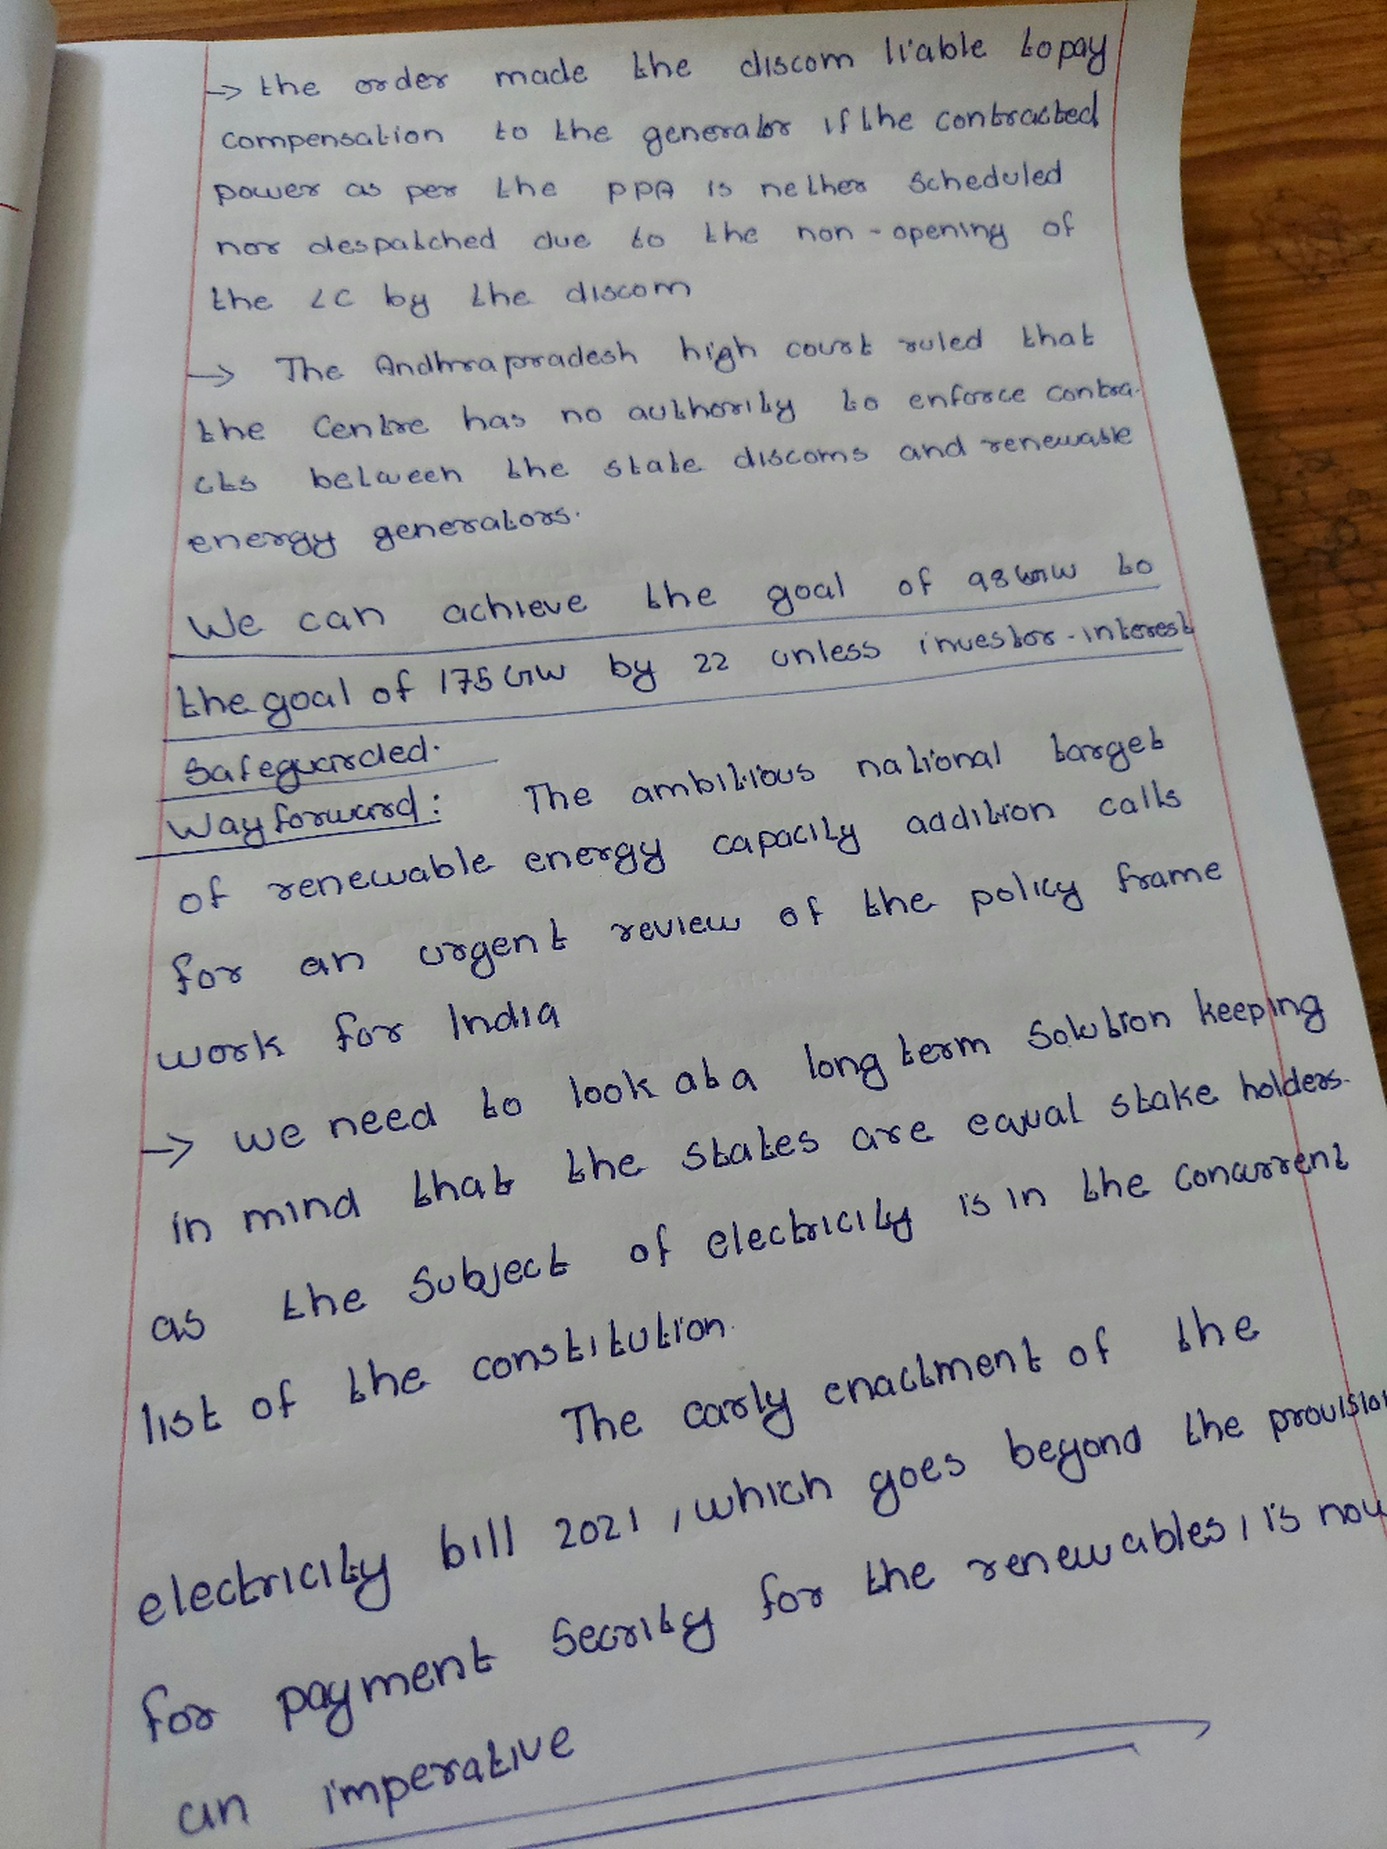 → the order made the discom liable to pay
compensation to the generator if the contracted
power as per the PPA is nether scheduled
nor despatched due to the non-opening of
the LC by the discom
→ The Andhrapradesh high court ruled that
the Centre has no authority to enforce contra-
cts between the state discoms and renewable
energy generators.
We can achieve the goal of 98GW to
the goal of 175GW by 22 unless investor-interest
Safeguarded.
Way forward: The ambitious national target
of renewable energy capacity addition calls
for an urgent review of the policy frame
work for India
→ we need to look at a long term solution keeping
in mind that the states are equal stake holders.
as the subject of electricity is in the concurrent
list of the constitution.
The early enactment of the
electricity bill 2021, which goes beyond the provision
for payment secrity for the renewables, is now
an imperative